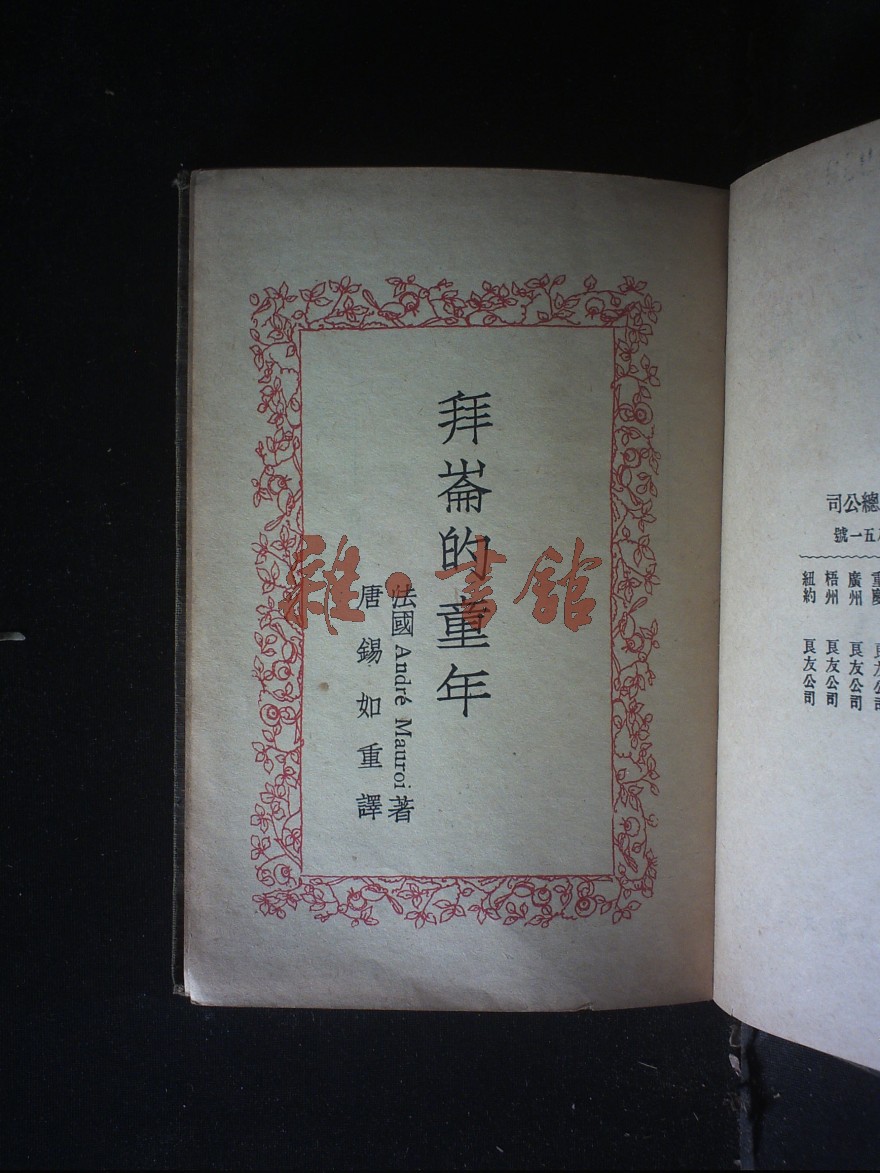 拜崙的童年
法國 André Mauroi 著
唐錫如重譯
雜·書館
總公司
五一號
重慶
廣州 良友公司
梧州 良友公司
紐約 良友公司